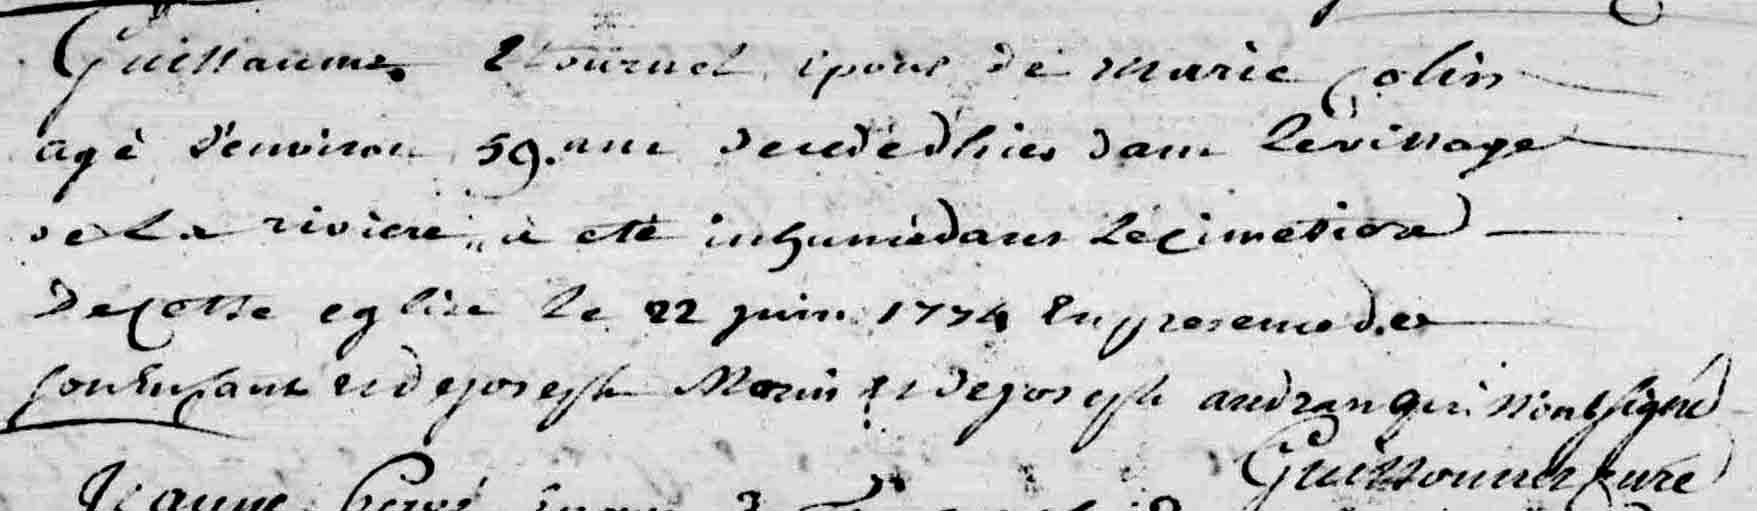 Guillaume Etournel époux de marie Colin
agé d'environ 59. ans decedé d'hier dans le village
de La riviere, a eté inhumé dans le cimetiere
De cette eglise le 22 juin 1774 En presence de
son Enfant et de joseph Morin et de joseph audran qui n'ont signé
Guillonner Curé
Jeanne